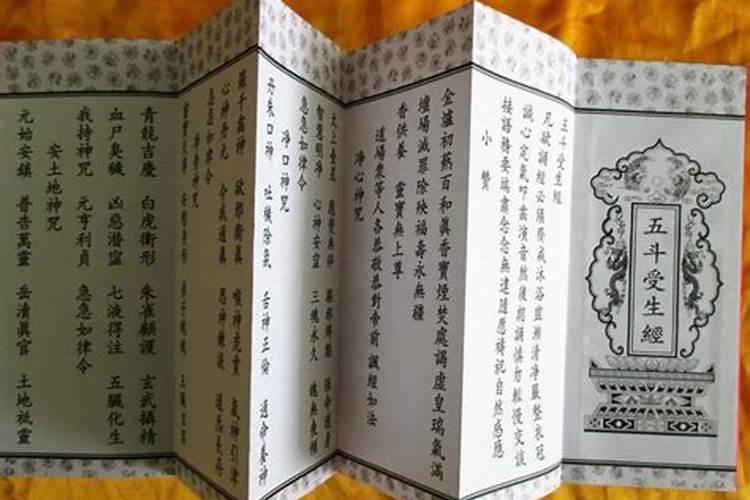 五斗受生經
五斗受生經
凡欲誦經必須齋戒沐浴盥漱清淨嚴整衣冠
誠心定氣叩齒演音然後朗誦慎勿輕慢交談
接語務要端肅念念無違隨應禱祀自然感應
小 贊
金爐初爇百和真香寶煙焚處謁虛皇瑞氣滿
壇場滅罪除殃福壽永無疆
香供養 靈寶無上尊
道場眾等人各恭敬恭對帝前 誦經如法
淨心神咒
太上台星 應變無停 驅邪縛魅 保命護身
智慧明淨 心神安寧 三魂永久 魄無喪傾
急急如律令
淨口神咒
丹朱口神 吐穢除氛 舌神正倫 通命養神
羅千齒神 卻邪衛真 喉神虎賁 氣神引津
心神丹元 令我通真 思神鍊液 道炁長存
急急如律令
淨身神咒
靈寶天尊 安慰身形 弟子魂魄 五臟玄冥
青龍吉慶 白虎衛形 朱雀顧護 玄武攝精
血尸臭穢 凶惡潛寧 七液得注 五臟化生
我持神咒 元亨利貞 急急如律令
安土地神咒
元始安鎮 普告萬靈 岳瀆真官 土地祇靈